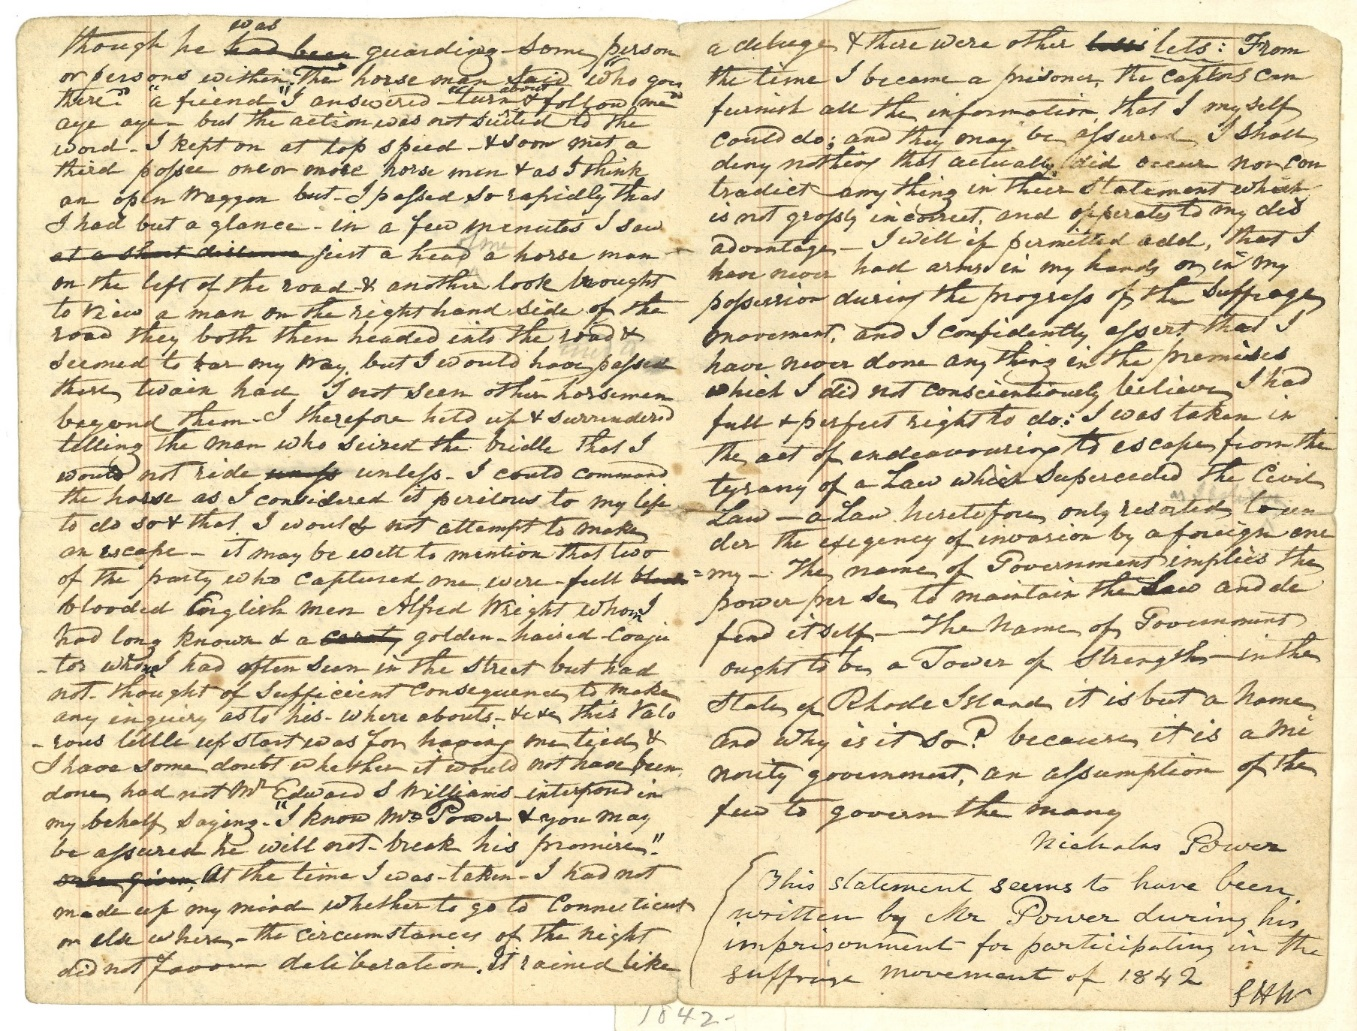 was
though he had been guarding some person
or persons within. The horse man said "who goes
there?" "a friend" I answered - "turn about & follow me"
aye aye - but the action was not suited to the
word - I kept on at top speed - & soon met a
third posse one or more horse men & as I think
an open waggon but I passed so rapidly that
I had but a glance - in a few minutes I saw
of me
at a short distance just a head a horse man
on the left of the road & another look brought
to view a man on the right hand side of the
road they both then headed into the road &
seemed to bar my way, but I would have passed
these twain had I not seen other horsemen
beyond them - I therefore held up & surrendered
telling the man who seized the bridle that I
would not ride unless unless - I could command
the horse as I considered it perilous to my life
to do so & that I would not attempt to make
an escape - it may be well to mention that two
of the party who captured me were - full blood =
blooded English men Alfred Wright whom I
had long known & a golden - haired - Coaju
- tor whom I had often seen in the street but had
not thought of sufficient consequence to make
any inquiry as to his - where abouts - &c &c this Valo
- rous little upstart was for having me tied &
I have some doubt whether it would not have been
done had not Mr Edward S Williams - interposed in
my behalf saying - "I know Mr Power & you may
be assured he will not - break his promise".
once given, At the time I was - taken - I had not
made up my mind whether to go to Connecticut
or else where - the circumstances of the night
did not favour deliberation. It rained like
a deluge & there were other lets: From
the time I became a prisoner, the captors can
furnish all the information, that I myself
could do; and they may be assured I shall
deny nothing that actually did occur nor con
tradict anything in their statement which
is not grossly incorrect, and opperates to my dis
advantage - I will if permitted add, that I
have never had arms in my hands or in my
possession during the progress of the Suffrage
movement, and I confidently assert that I
have never done any thing in the premises
which I did not conscientiously believe I had
full & perfect right to do: I was taken in
the act of endeavouring to escape from the
tyrany of a Law which Superceded the Civil
Law - a Law heretofore only resorted to un
der the exigency of invasion by a foreign ene
my - The name of Government implies the
power per se to maintain the Law and de
fend itself - The Name of Government
ought to be a Tower of Strength - in the
State of Rhode Island it is but a Name
and why is it so? because it is a Mi
nority government, an assumption of the
few to govern the many
Nicholas Power
This statement seems to have been
written by Mr Power during his
imprisonment for participating in the
suffrage movement of 1842
S H W
1842 -